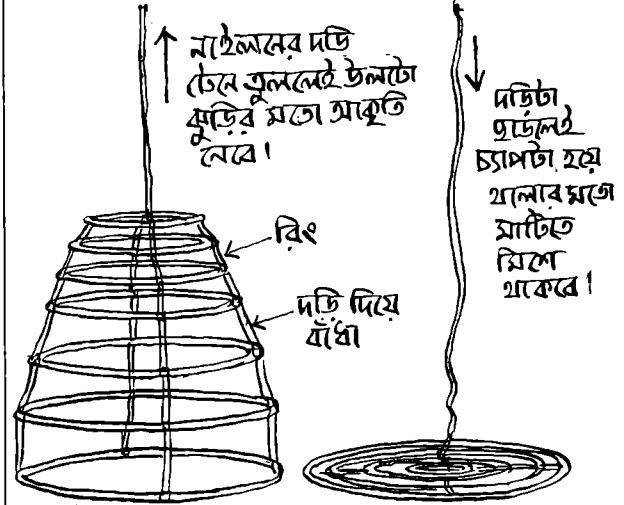 নাইলনের দড়ি
টেনে তুললেই উলটো
ঝুড়ির মতো আকৃতি
নেবে।
রিং
দড়ি দিয়ে
বাঁধা
দড়িটা
ছাড়লেই
চ্যাপটা হয়ে
থালার মতো
মাটিতে
মিশে
থাকবে।